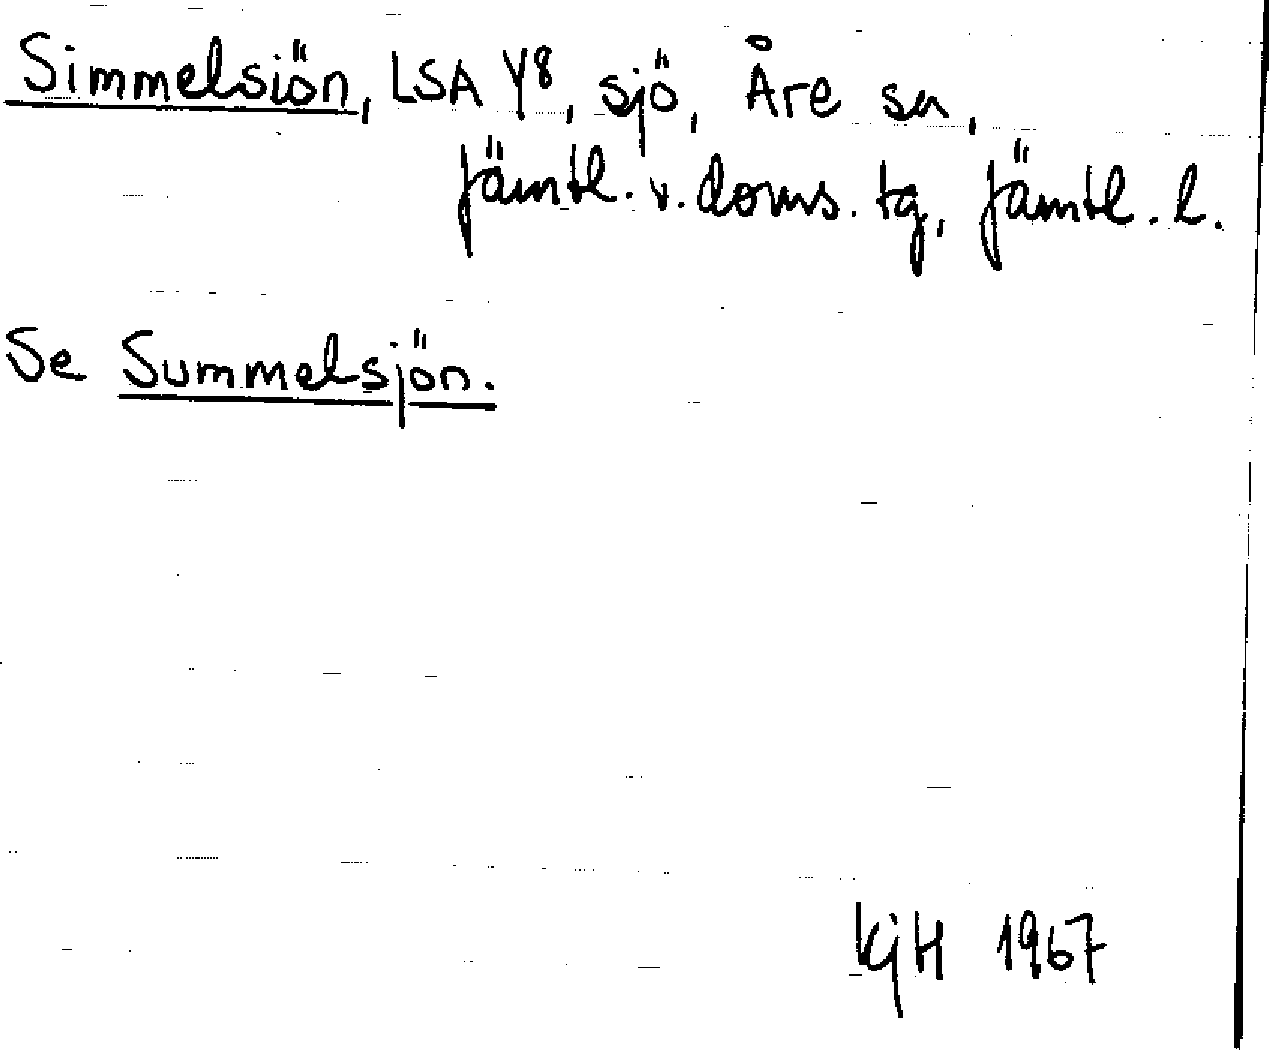 Simmelsiön, LSA Y8, sjö, Åre sn,
Jämtl. v. doms. tg, Jämtl. l.
Se Summelsjön.
KjH 1967